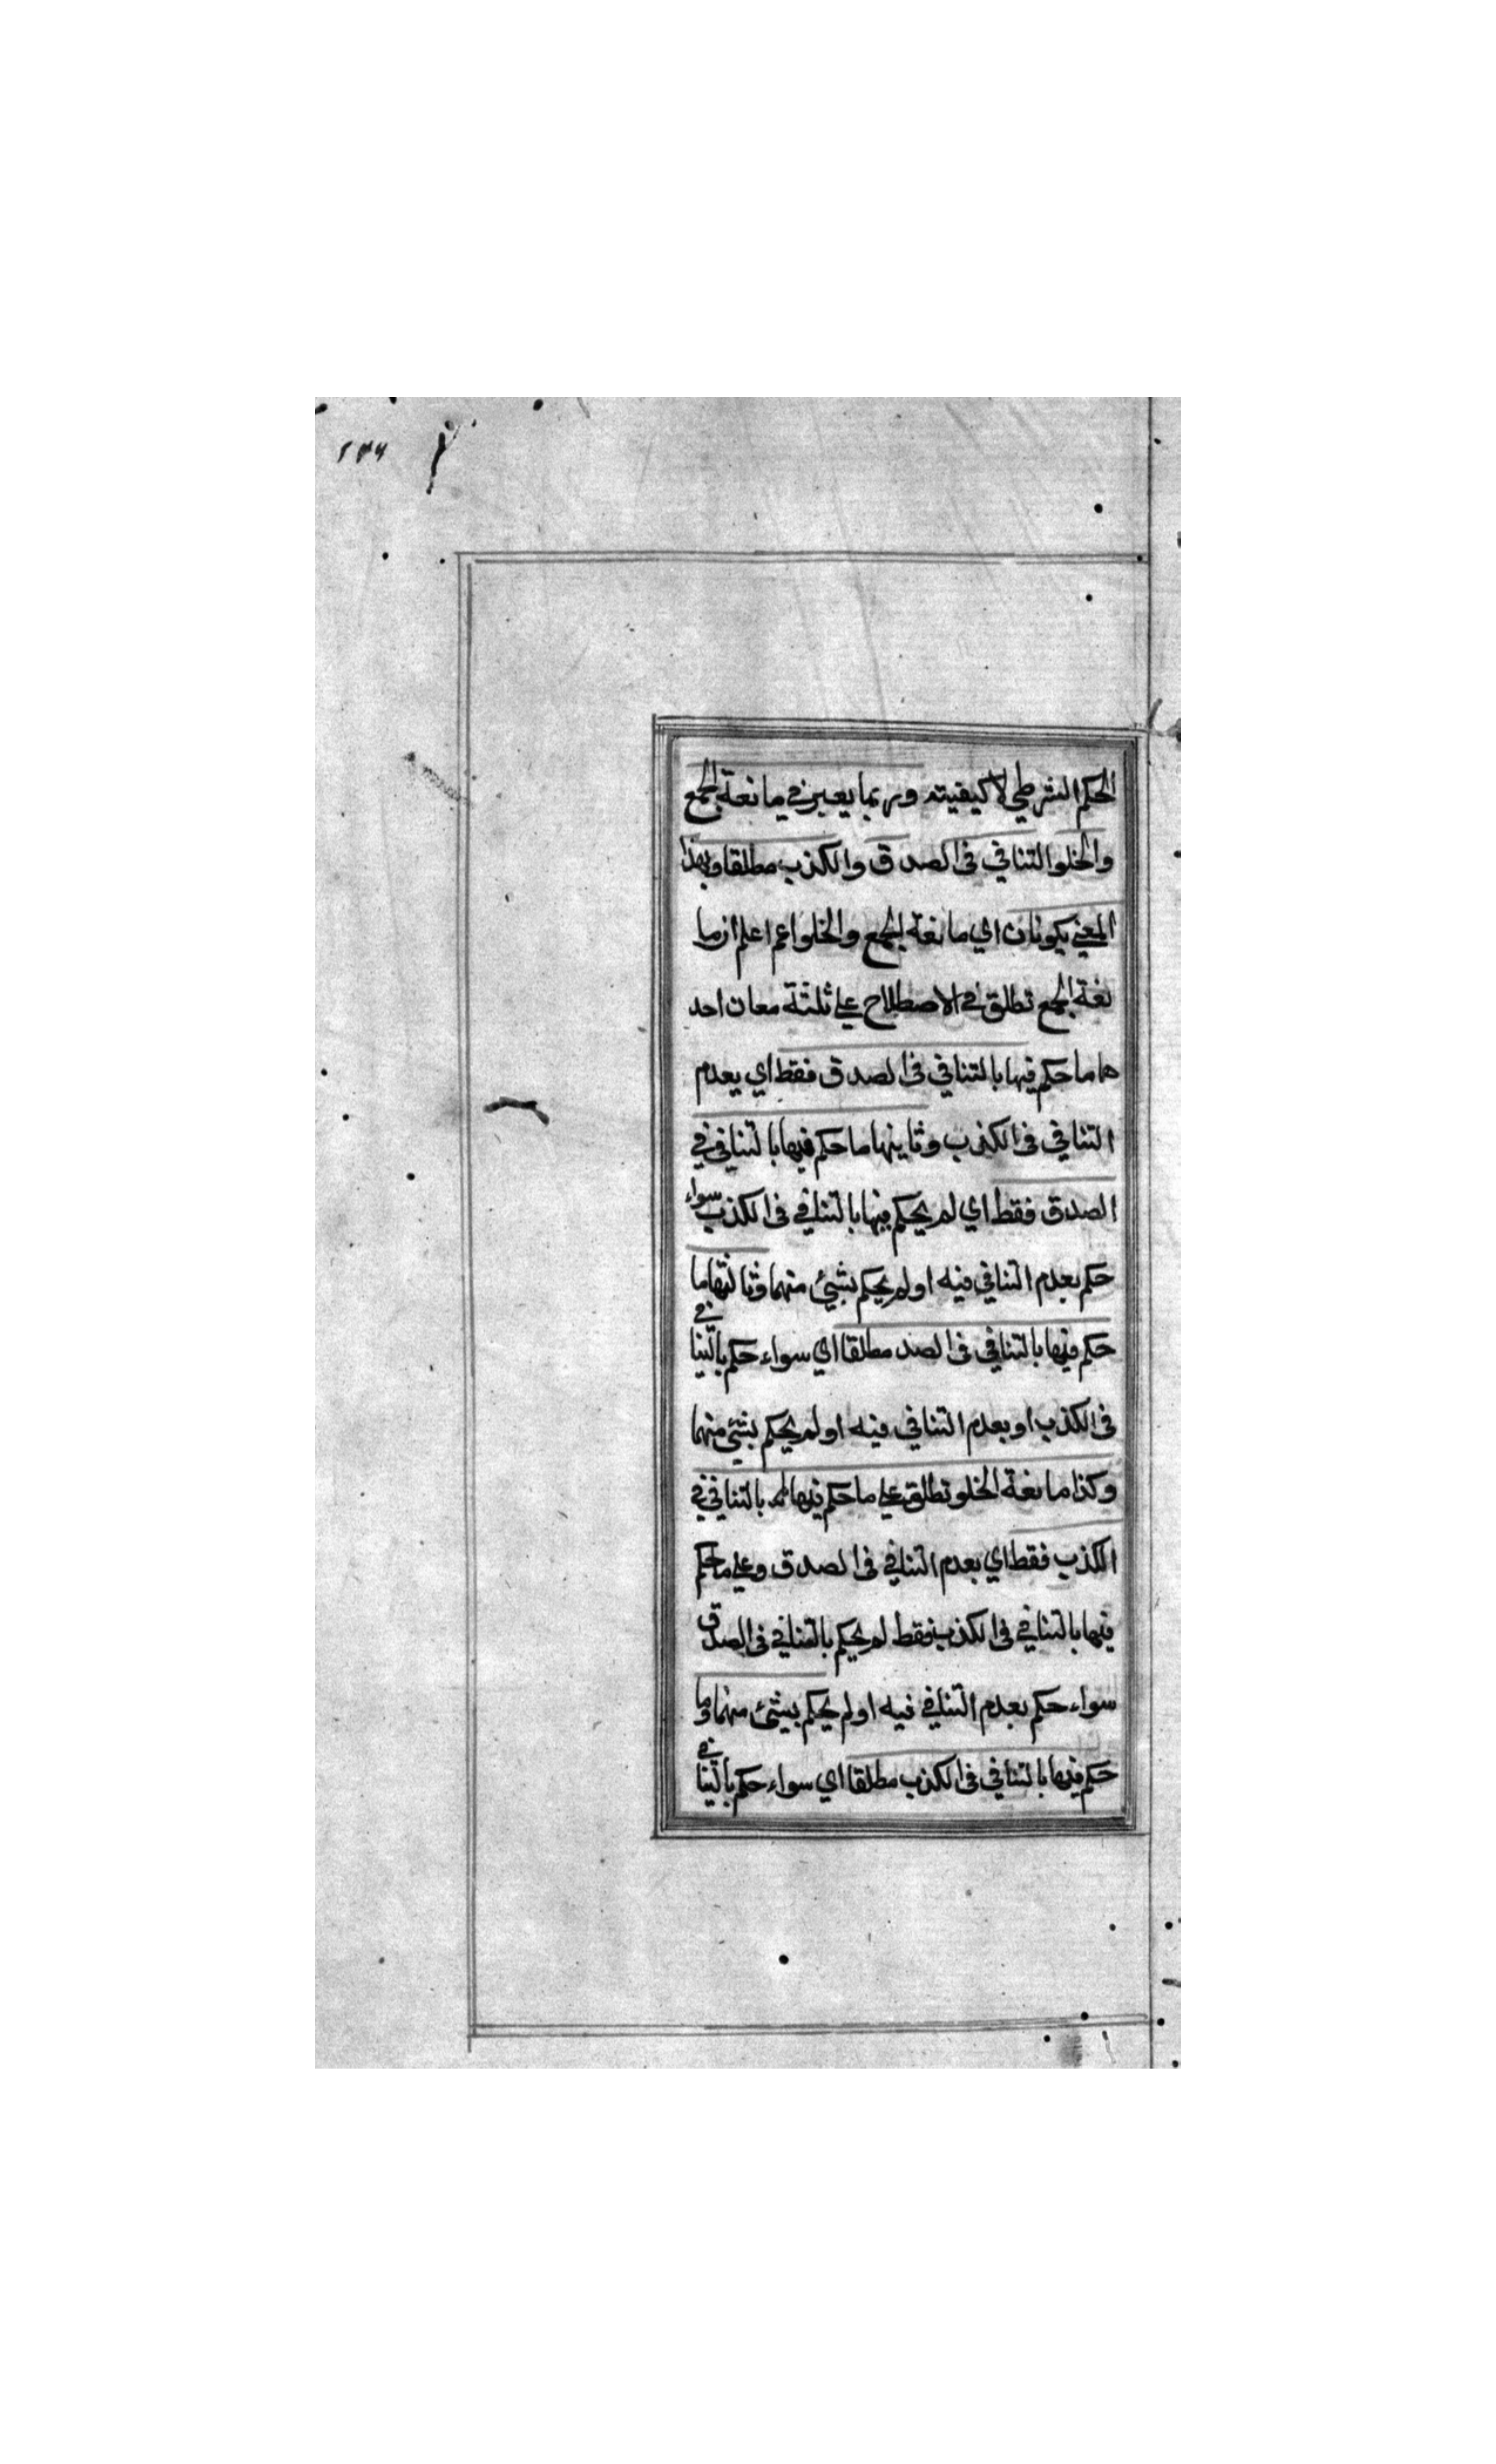 ١٣٦
الحكم الشرطي لا كيفيته وربما يعبر في مانعة الجمع
والخلو التنافي في الصدق والكذب مطلقا وبهذا
المعني يكونان اي مانعة الجمع والخلو اعم اعلم ان ما
نعة الجمع تطلق في الاصطلاح علي ثلثة معان احد
هما ما حكم فيها بالتنافي في الصدق فقط اي بعدم
التنافي في الكذب وثاينها ما حكم فيها بالتنافي في
الصدق فقط اي لم يحكم فيها بالتنافي في الكذب سواء
حكم بعدم التنافي فيه او لم يحكم بشيئ منهما وثالثها ما
حكم فيها بالتنافي في الصد مطلقا اي سواء حكم بالتنافي
في الكذب او بعدم التنافي فيه او لم يحكم بشيئ منهما
وكذا مانعة الخلو تطلق علي ما حكم فيها بالتنافي في
الكذب فقط اي بعدم التنافي في الصدق وعلي ما حكم
فيها بالتنافي في الكذب فقط لم يحكم بالتنافي في الصدق
سواء حكم بعدم التنافي فيه او لم يحكم بشيئ منهما وما
حكم فيها بالتنافي في الكذب مطلقا اي سواء حكم بالتنافي